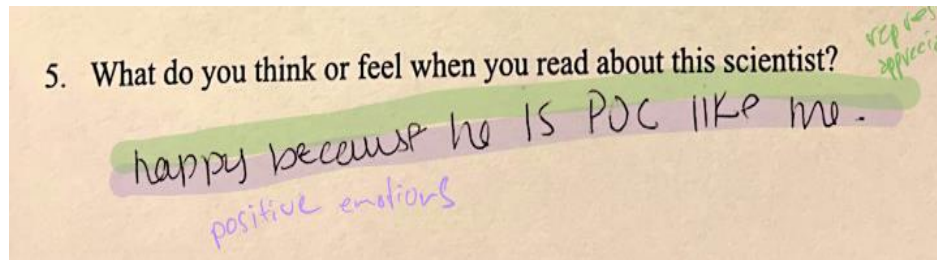 5. What do you think or feel when you read about this scientist?
happy because he is POC like me.
positive emotions